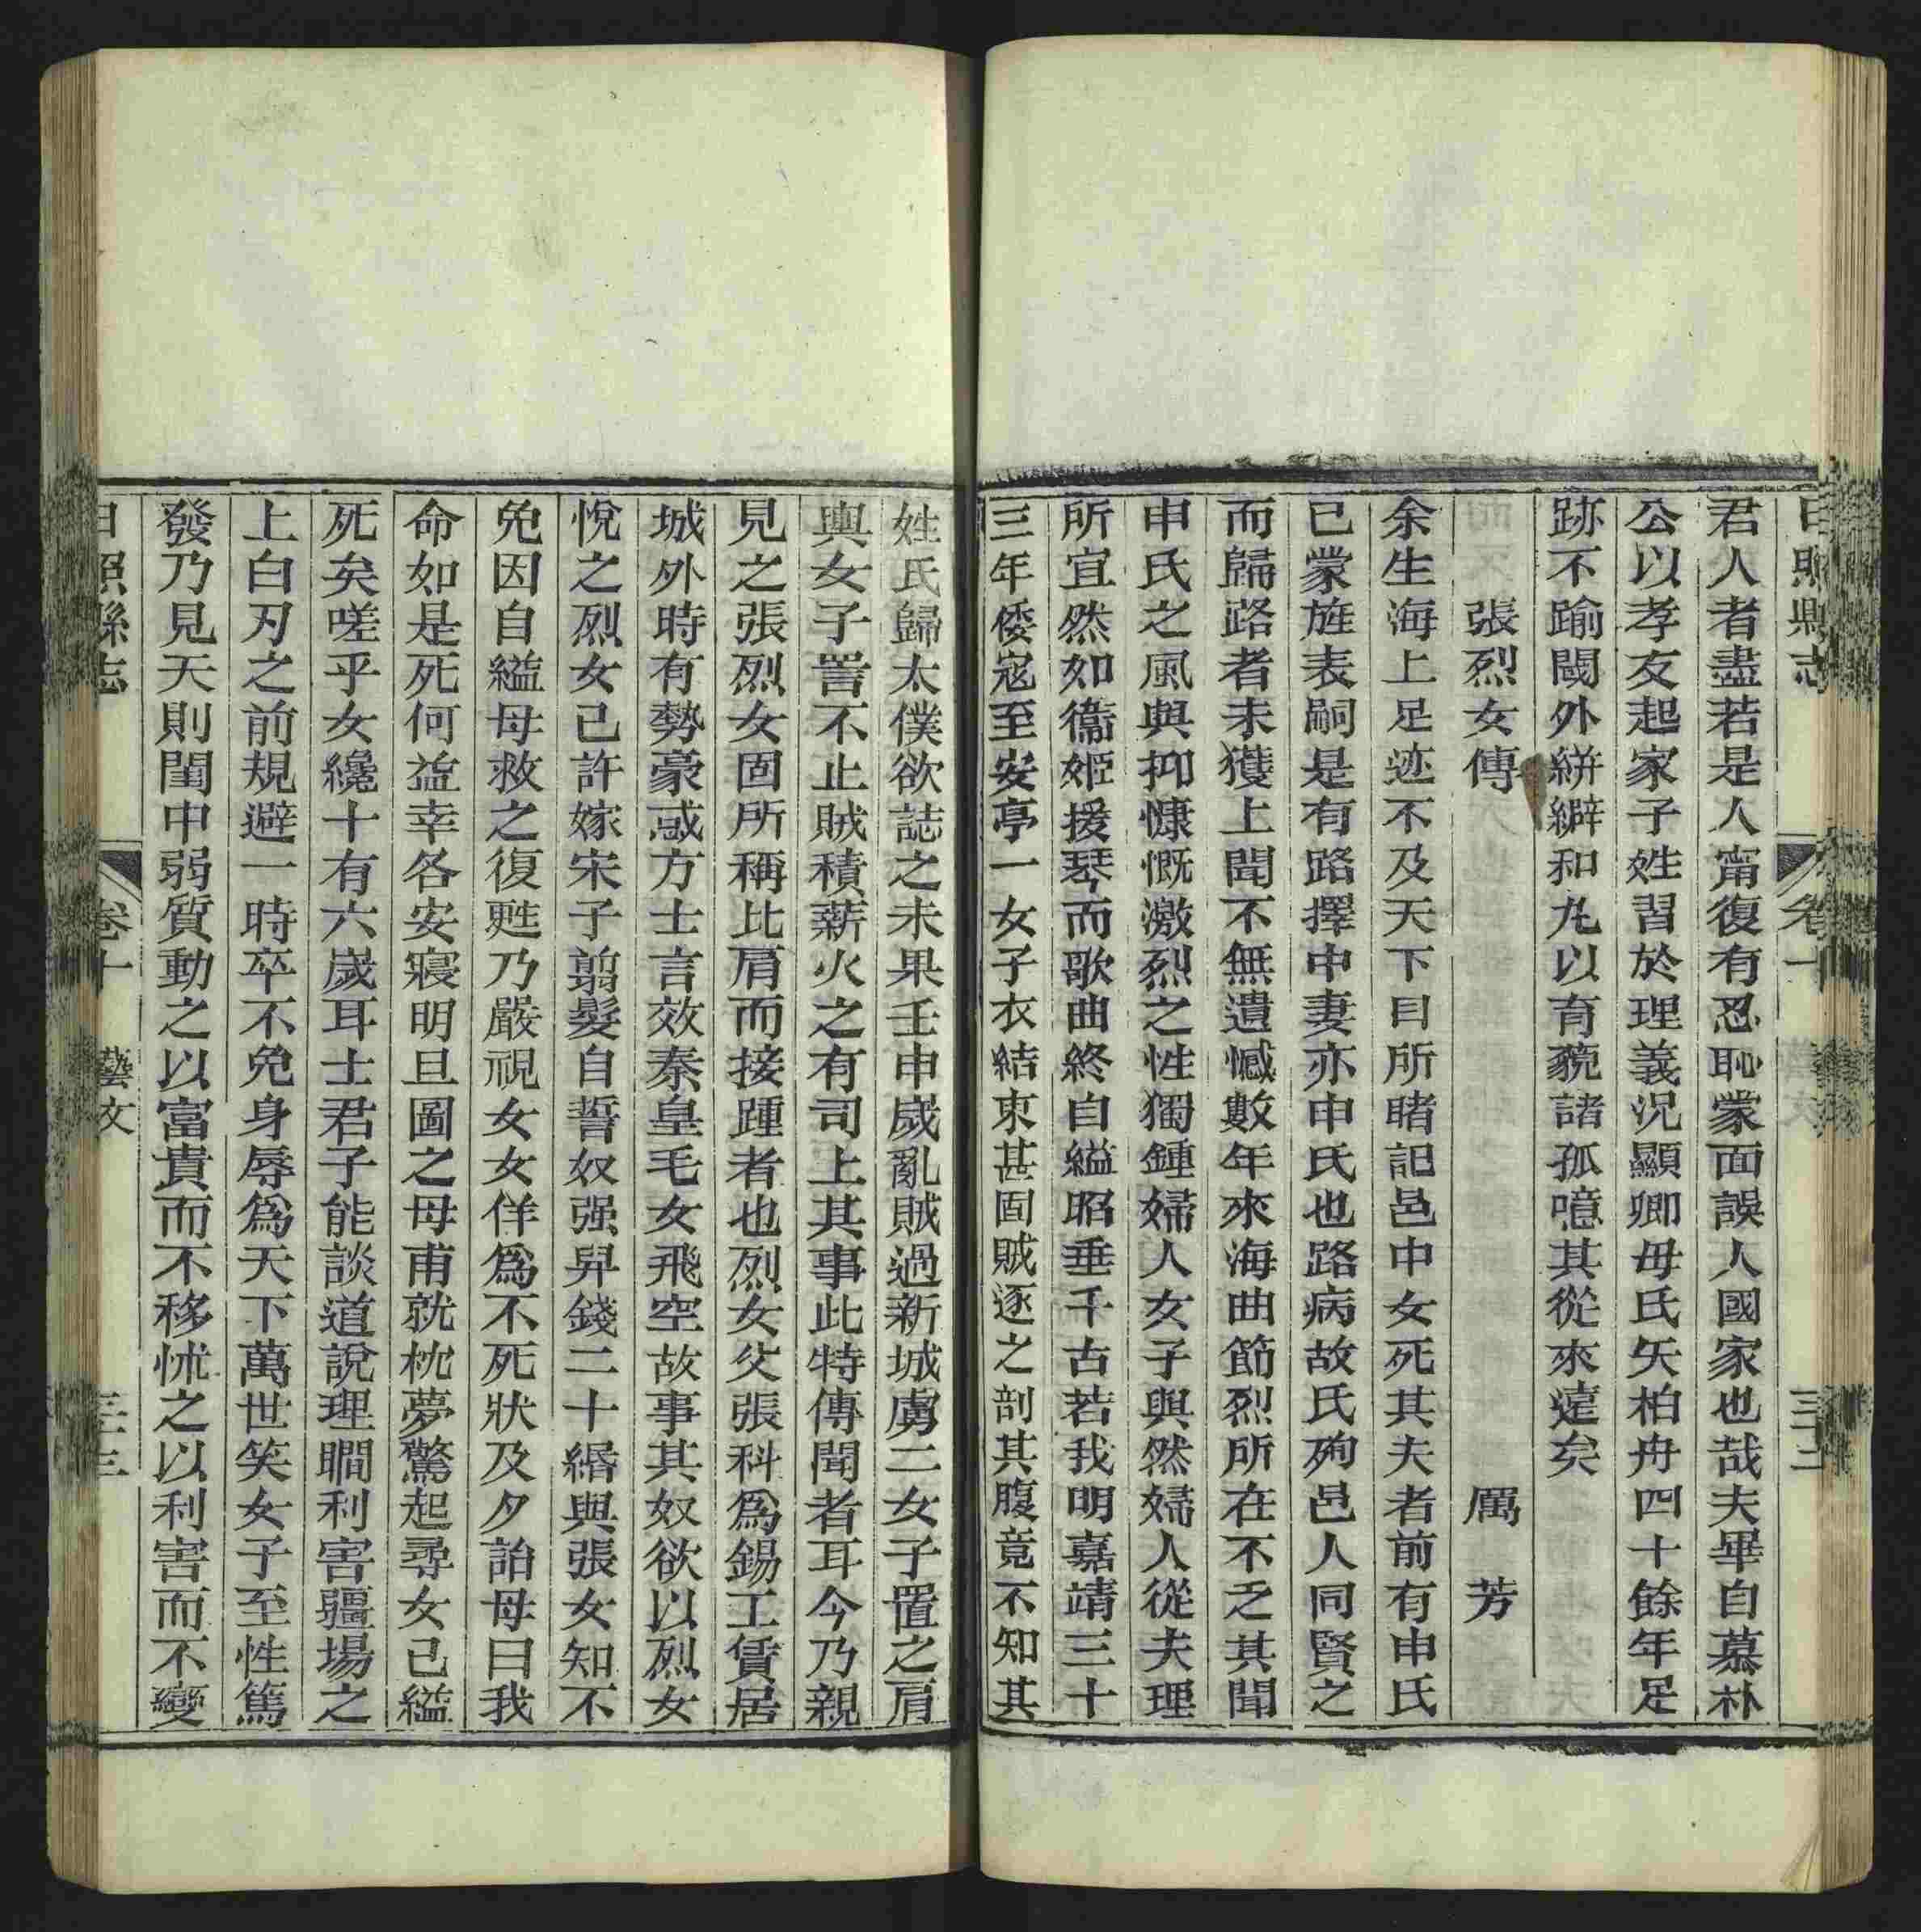 日照縣志 卷十 藝文 三十二
君人者盡若是人甯復有忍恥蒙面誤人國家也哉夫畢自慕朴
公以孝友起家子姓習於理義況顯卿母氏矢柏舟四十餘年足
跡不踰閾外絣澼和丸以育藐諸孤噫其從來遠矣
張烈女傳 厲芳
余生海上足迹不及天下目所睹記邑中女死其夫者前有申氏
已蒙旌表嗣是有路擇中妻亦申氏也路病故氏殉邑人同賢之
而歸路者未獲上聞不無遺憾數年來海曲節烈所在不乏其聞
申氏之風與抑慷慨激烈之性獨鍾婦人女子與然婦人從夫理
所宜然如衞姬援琴而歌曲終自縊昭垂千古若我明嘉靖三十
三年倭寇至安亭一女子衣結束甚固賊逐之剖其腹竟不知其
姓氏歸太僕欲誌之未果壬申歲亂賊過新城虜二女子置之肩
輿女子詈不止賊積薪火之有司上其事此特傳聞者耳今乃親
見之張烈女固所稱比肩而接踵者也烈女父張科爲錫工賃居
城外時有勢豪惑方士言效秦皇毛女飛空故事其奴欲以烈女
悅之烈女已許嫁宋子翦髮自誓奴强舁錢二十緡與張女知不
免因自縊母救之復甦乃嚴視女女佯爲不死狀及夕詒母曰我
命如是死何益幸各安寢明旦圖之母甫就枕夢驚起尋女已縊
死矣嗟乎女纔十有六歲耳士君子能談道說理瞯利害疆場之
上白刃之前規避一時卒不免身辱爲天下萬世笑女子至性篤
發乃見天則閨中弱質動之以富貴而不移怵之以利害而不變
日照縣志 卷十 藝文 三十三